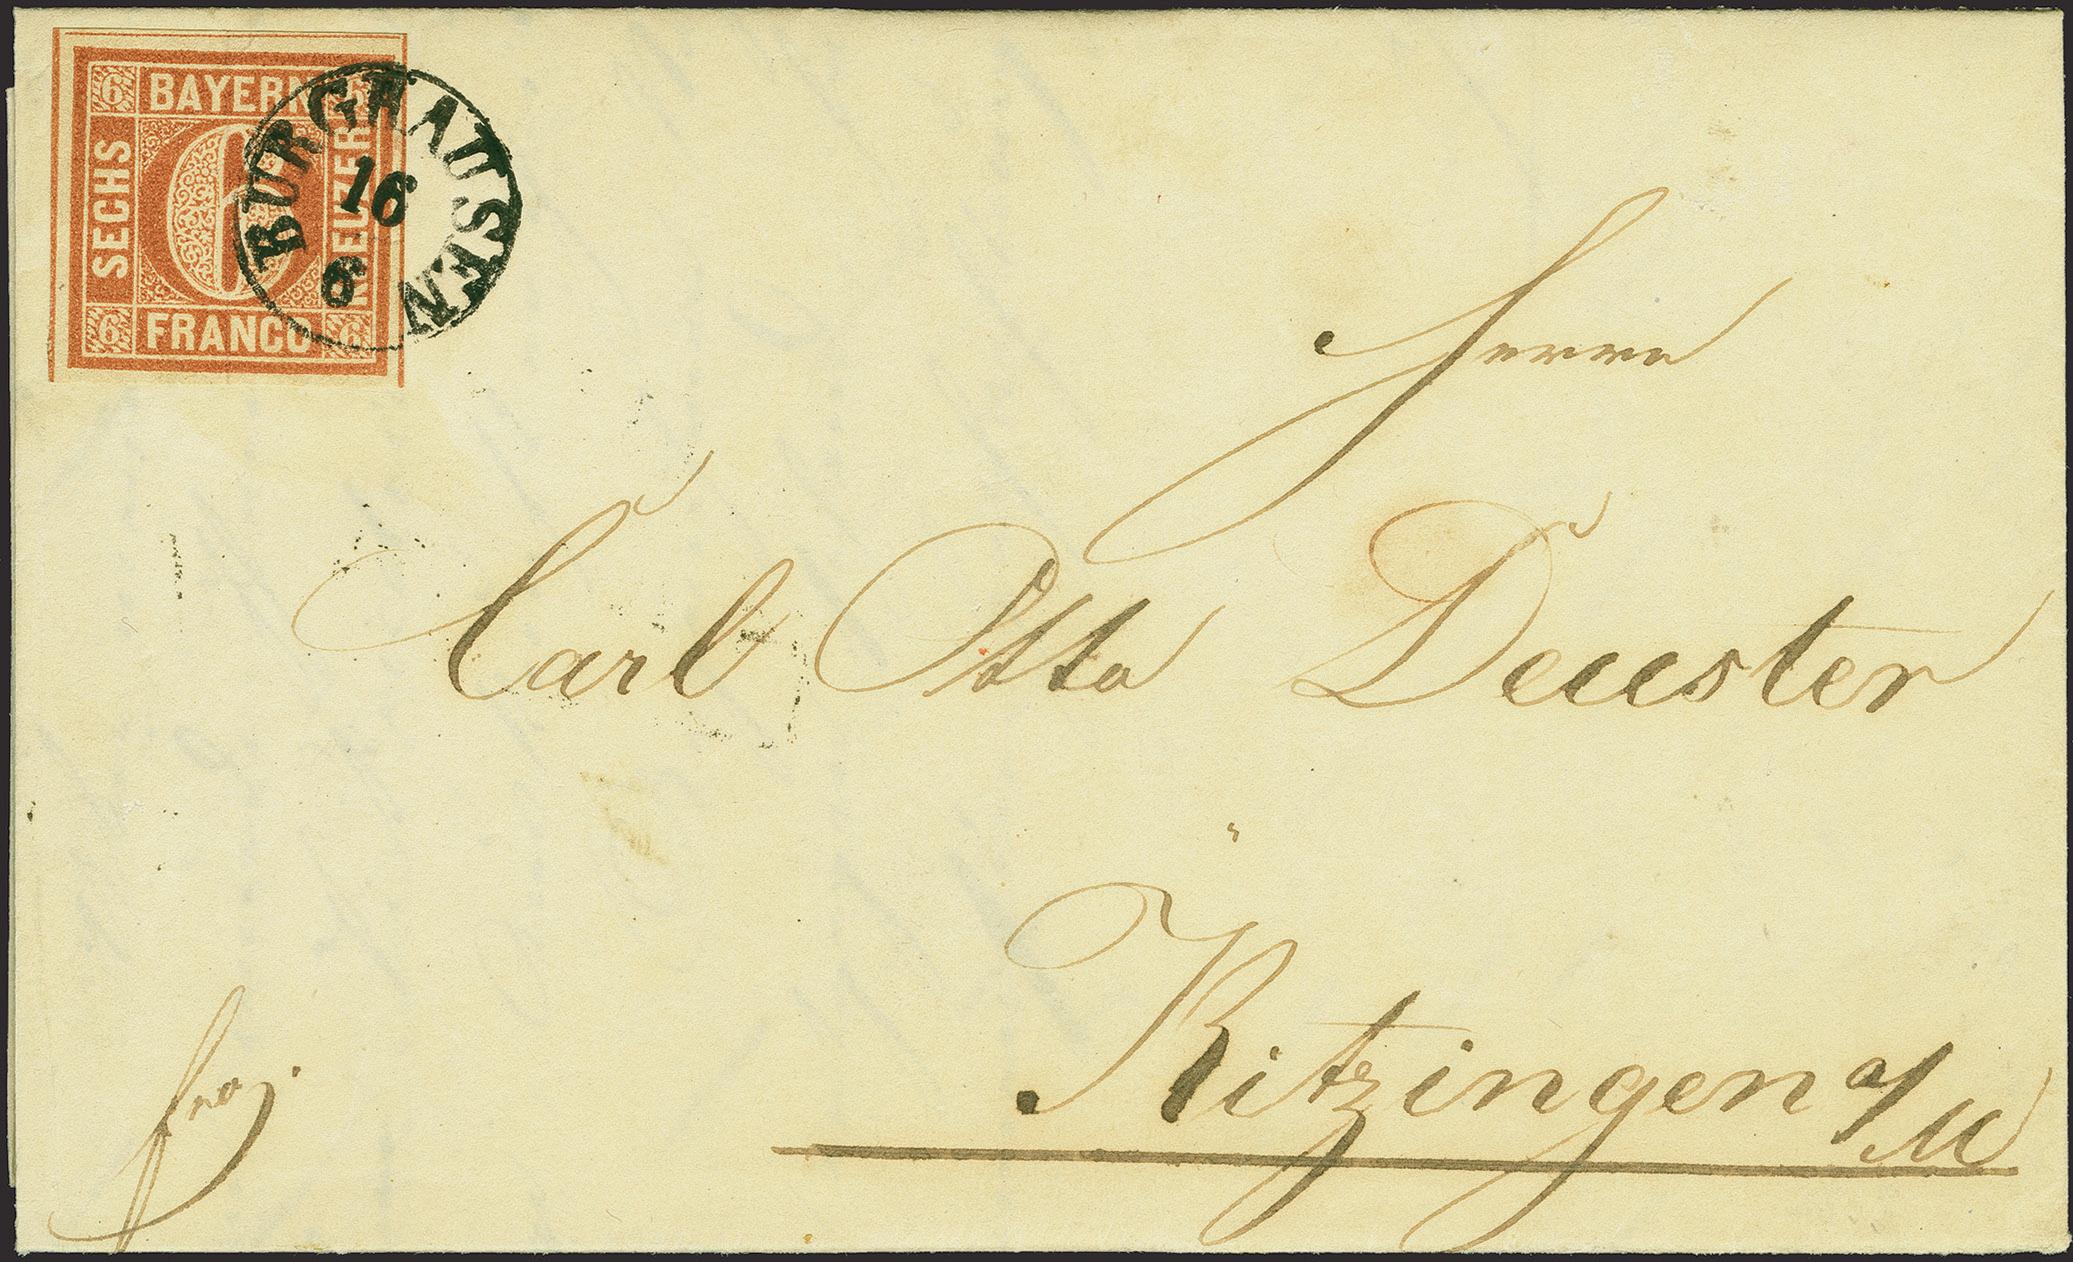 6 BAYERN 6
SECHS
6
KREUZER
6 FRANCO 6
BURGHAUSEN
16
6
Herrn
Carl Otto Deuster
Kitzingen a/M
fro.